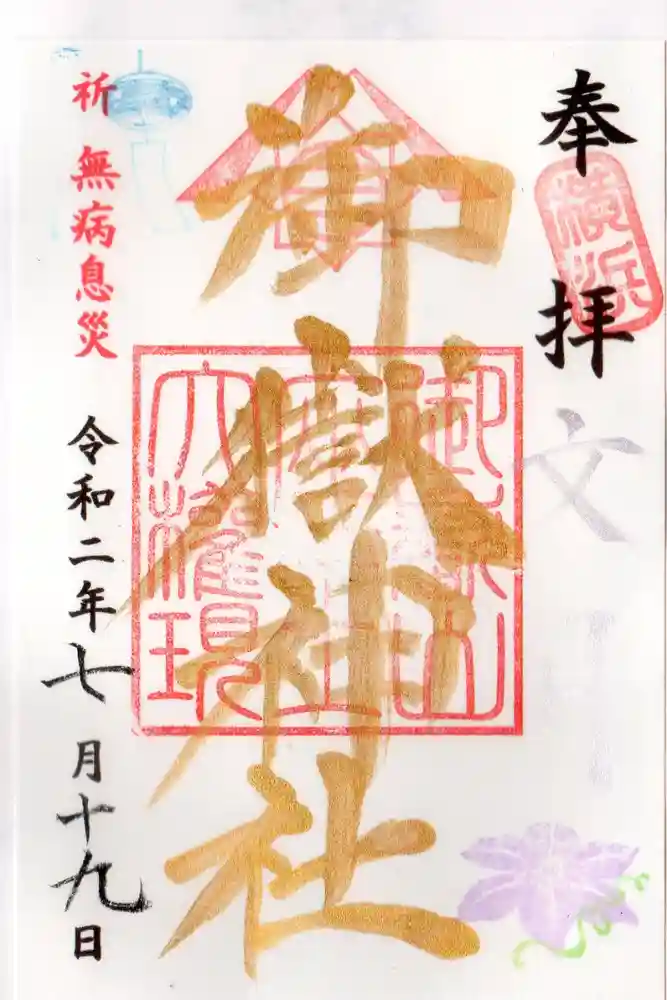 奉拝
横浜
文月
御嶽神社
御嶽山
大権現
祈 無病息災
令和二年七月十九日